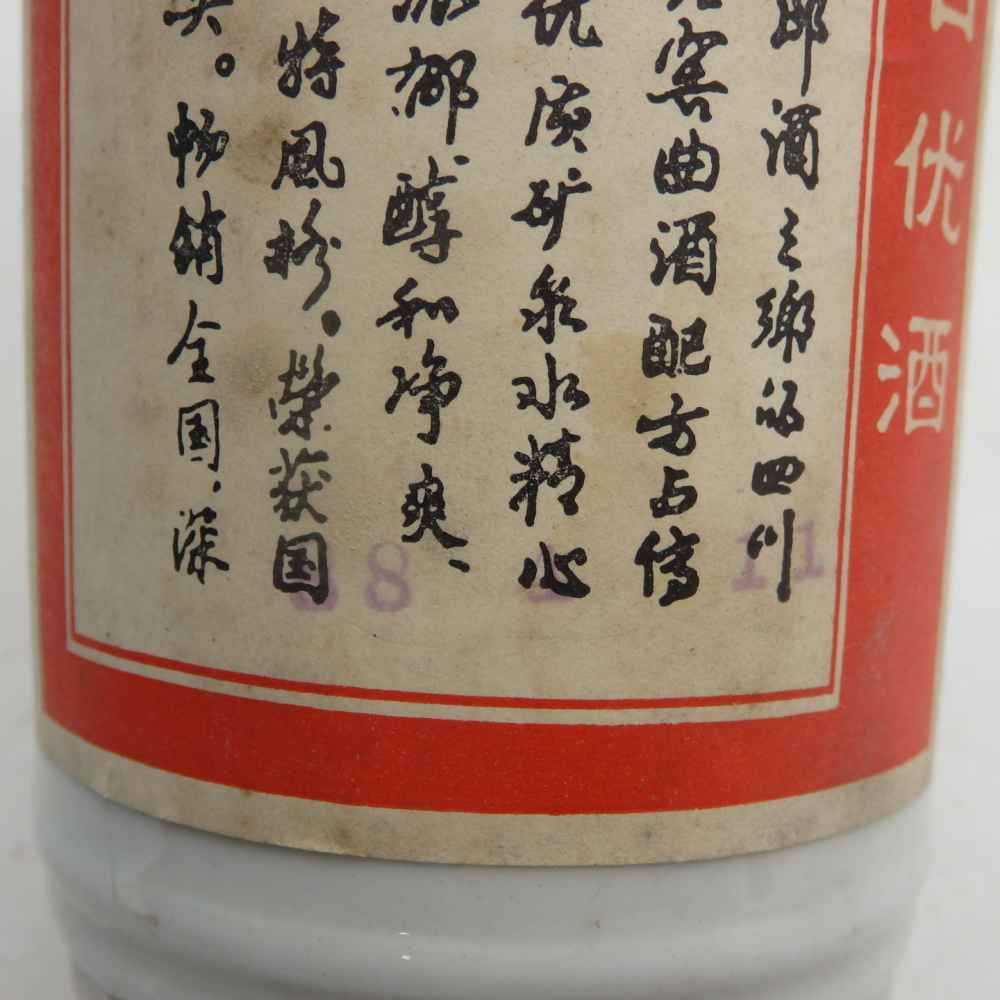 优酒
郎酒之鄉的四川
窖曲酒配方与传
优质矿泉水精心
浓郁醇和净爽、
特風格。荣获国
奖。畅销全国，深
8 11